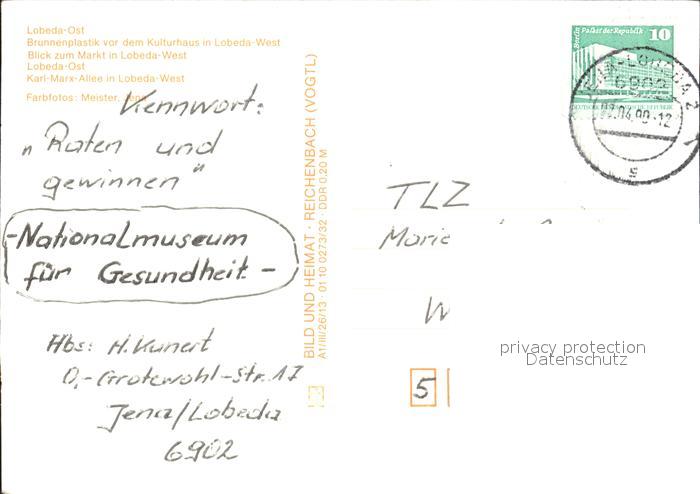 Lobeda-Ost
Brunnenplastik vor dem Kulturhaus in Lobeda-West
Blick zum Markt in Lobeda-West
Lobeda-Ost
Karl-Marx-Allee in Lobeda-West
Farbfotos: Meister, Jena
Kennwort:
„Raten und
gewinnen"
-Nationalmuseum
für Gesundheit-
Abs: H. Kunert
O.-Grotewohl-Str. 17
Jena/Lobeda
6902
BILD UND HEIMAT · REICHENBACH (VOGTL)
A1/III/26/13 · 01 10 0273/32 · DDR 0,20 M
Berlin Palast der Republik 10
6902
.04.90-12
TLZ
Marie
W
5
privacy protection
Datenschutz